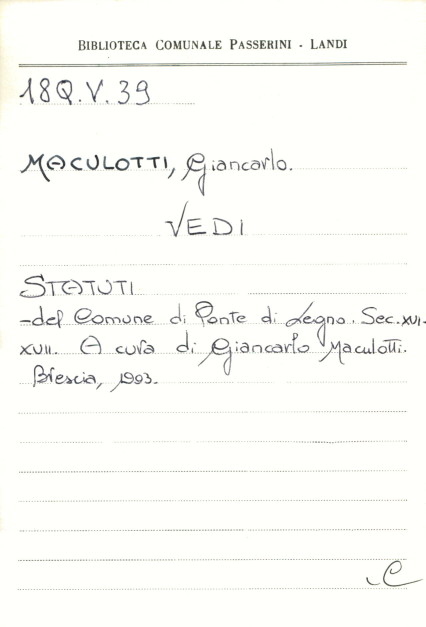 BIBLIOTECA COMUNALE PASSERINI - LANDI
18Q.V.39
MACULOTTI, Giancarlo.
VEDI
STATUTI
-del Comune di Ponte di Legno. Sec. XVI-
XVII. A cura di Giancarlo Maculotti.
Brescia, 1993.
C